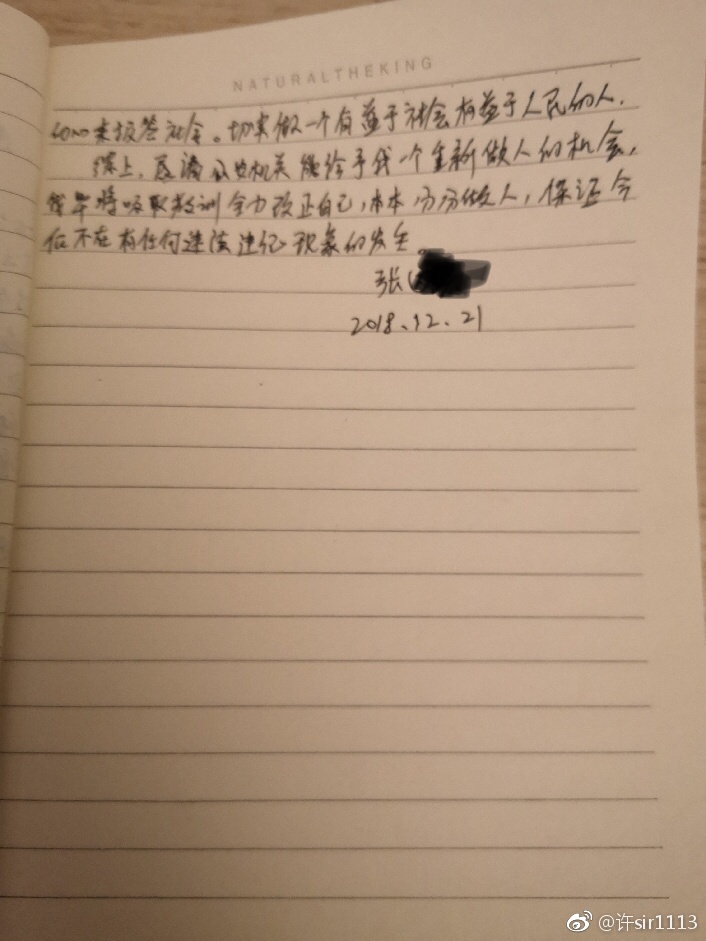 NATURALTHEKING
来报答社会。切实做一个有益于社会有益于人民的人.
综上,恳请公安机关能给予我一个重新做人的机会,
我将吸取教训全力改正自己,本本分分做人,保证今
后不在有任何违法违纪现象的发生
张
2018.12.21
@许sir1113